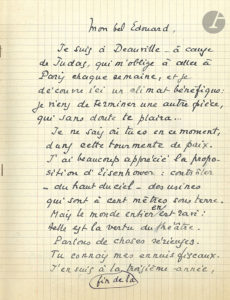 mon bel Edouard,
Je suis à Deauville - à cause
de Judas, qui m'oblige à aller à
Paris chaque semaine, et je
découvre ici un climat bénéfique:
je viens de terminer une autre pièce,
qui sans doute te plaira...
Je ne sais où tu es en ce moment,
dans cette tourmente de paix.
J'ai beaucoup apprécié la propo-
sition d'Eisenhower: contrôler
- du haut du ciel - des usines
qui sont à cent mètres sous terre.
Mais le monde entier en est ravi:
telle est la vertu du théâtre.
Parlons de choses sérieuses.
Tu connais mes ennuis fiscaux.
J'en suis à la troisième année,
fin de la